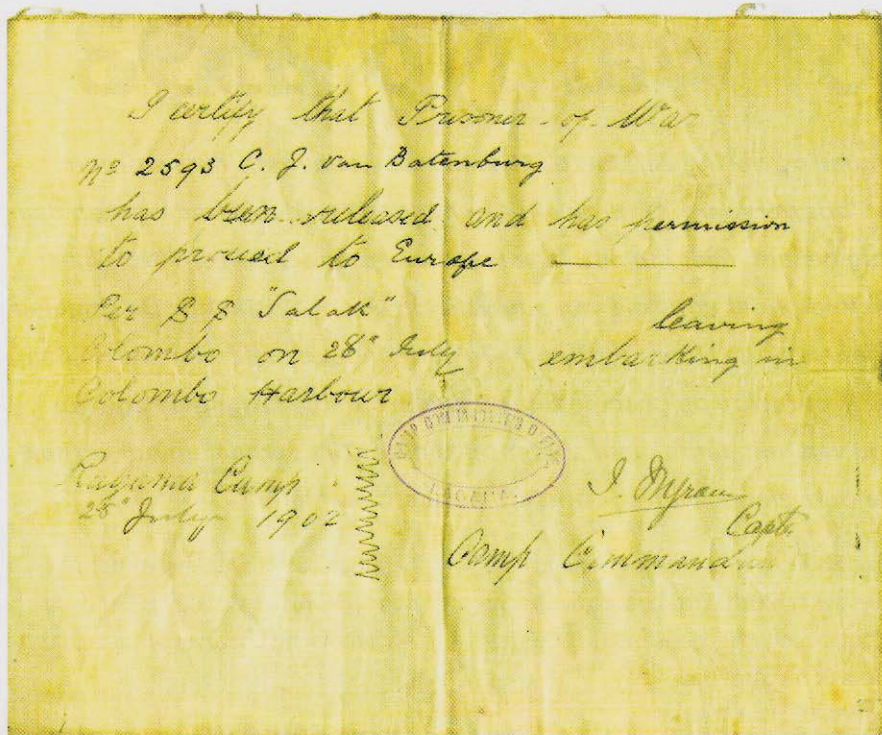 I certify that Prisoner-of-War
No 2593 C. J. van Batenburg
has been released and has permission
to proceed to Europe
Per S S "Salak" leaving
Colombo on 28" July embarking in
Colombo Harbour
Ragama Camp
28" July 1902
Capt
Camp Commandant
RAGAMA